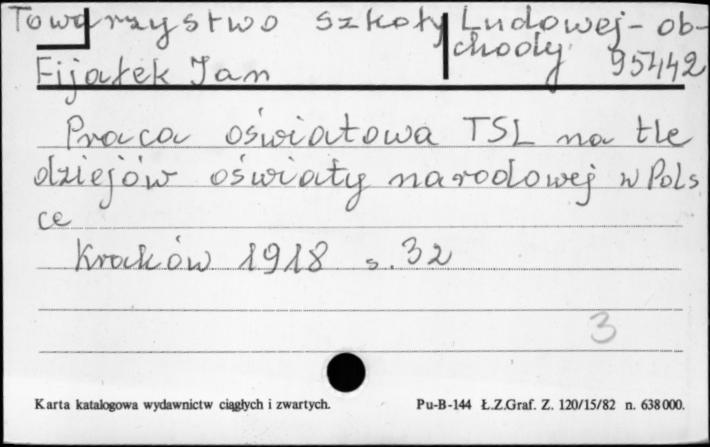 Towarzystwo Szkoły Ludowej - ob-
chody
95442
Fijałek Jan
Praca oświatowa TSL na tle
dziejów oświaty narodowej w Pols
ce
Kraków 1918 s. 32
3
Karta katalogowa wydawnictw ciągłych i zwartych. Pu-B-144 Ł.Z.Graf. Z. 120/15/82 n. 638000.